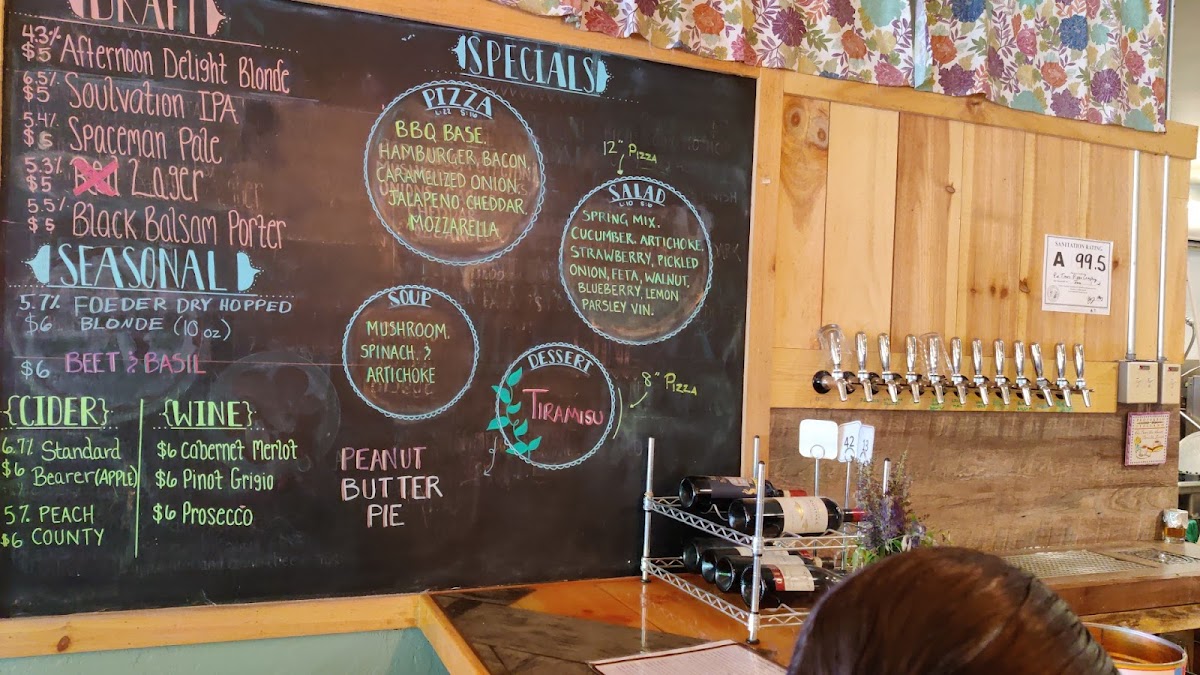 DRAFT
4.3% Afternoon Delight Blonde
$5
6.5% Soulvation IPA
$5
5.4% Spaceman Pale
$5
5.3% Lager
$5
5.5% Black Balsam Porter
$5
SEASONAL
5.7% FOEDER DRY HOPPED
$6 BLONDE (10 oz)
$6 BEET & BASIL
{CIDER}
6.7% Standard
$6 Bearer (APPLE)
5% PEACH
$6 COUNTY
{WINE}
$6 Cabernet Merlot
$6 Pinot Grigio
$6 Prosecco
SPECIALS
PIZZA
BBQ BASE.
HAMBURGER, BACON,
CARAMELIZED ONION.
JALAPENO, CHEDDAR,
MOZZARELLA
12" PIZZA
SALAD
SPRING MIX.
CUCUMBER. ARTICHOKE,
STRAWBERRY, PICKLED
ONION, FETA, WALNUT.
BLUEBERRY, LEMON
PARSLEY VIN.
SOUP
MUSHROOM.
SPINACH. &
ARTICHOKE
DESSERT
TIRAMISU
8" PIZZA
PEANUT
BUTTER
PIE
SANITATION RATING
A 99.5
42